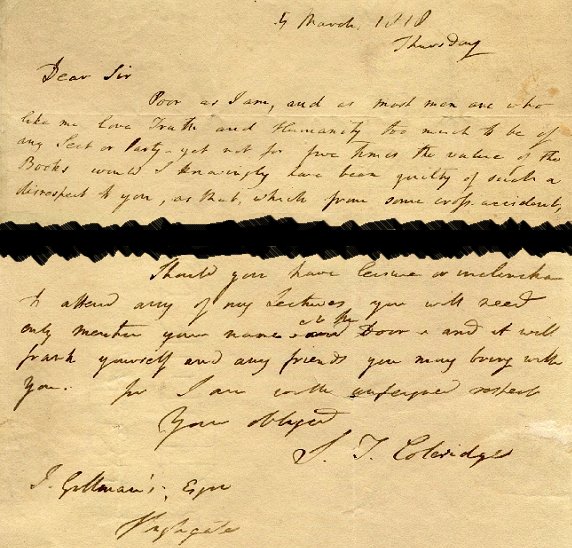 5 March 1818
Thursday
Dear Sir
Poor as I am, and as most men are who
like me love Truth and Humanity too much to be of
any Sect or Party - yet not for five times the value of the
Books would I knowingly have been guilty of such a
disrespect to you, as that, which from some cross accident,
Should you have leisure or inclination
to attend any of my Lectures you will need
only mention your name at the Door - and it will
frank yourself and any friends you may bring with
you. for I am with unfeigned respect
Your obliged
S. T. Coleridge
J. Gillman's, Esqre
Highgate